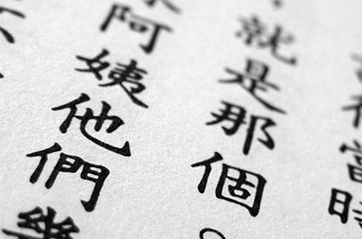 當時
就是那個。
阿姨他們